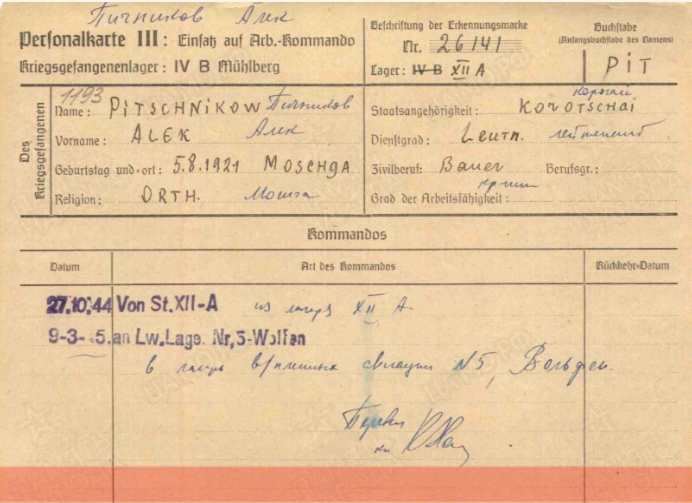 Пичников Алек
Personalkarte III: Einsatz auf Arb.-Kommando
Kriegsgefangenenlager: IV B Mühlberg
Beschriftung der Erkennungsmarke
Nr. 26141
Lager: IV B XII A
Buchstabe
(Anfangsbuchstabe des Namens)
PIT
Des Kriegsgefangenen
1193
Name: PITSCHNIKOW Пичников
Vorname: ALEK Алек
Geburtstag und -ort: 5.8.1921 MOSCHGA
Religion: ORTH. Можга
Staatsangehörigkeit: KOROTSCHAI
Dienstgrad: Leutn. лейтенант
Zivilberuf: Bauer Berufsgr.:
Grad der Arbeitsfähigkeit:
Kommandos
Datum Art des Kommandos Rückkehr-Datum
27.10.44 Von St. XII-A из лагеря XII A
9-3- 5. an Lw. Lage. Nr, 5-Wolfen
в лагерь военных авиации N5, Вольфен.